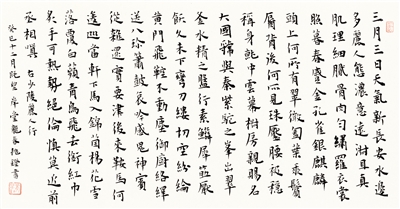 三月三日天氣新長安水邊
多麗人態濃意遠淑且真
肌理細膩骨肉勻繡羅衣裳
照暮春蹙金孔雀銀麒麟
頭上何所有翠微㔩葉垂鬢
脣背後何所見珠壓腰衱穩
稱身就中雲幕椒房親賜名
大國虢與秦紫駝之峯出翠
釜水精之盤行素鱗犀筯厭
飫久未下鸞刀縷切空紛綸
黃門飛鞚不動塵御廚絡繹
送八珍簫鼓哀吟感鬼神賓
從雜遝實要津後來鞍馬何
逡巡當軒下馬入錦茵楊花雪
落覆白蘋青鳥飛去銜紅巾
炙手可熱勢絕倫慎莫近前
丞相嗔 右少陵麗人行
癸巳十一月既望 書